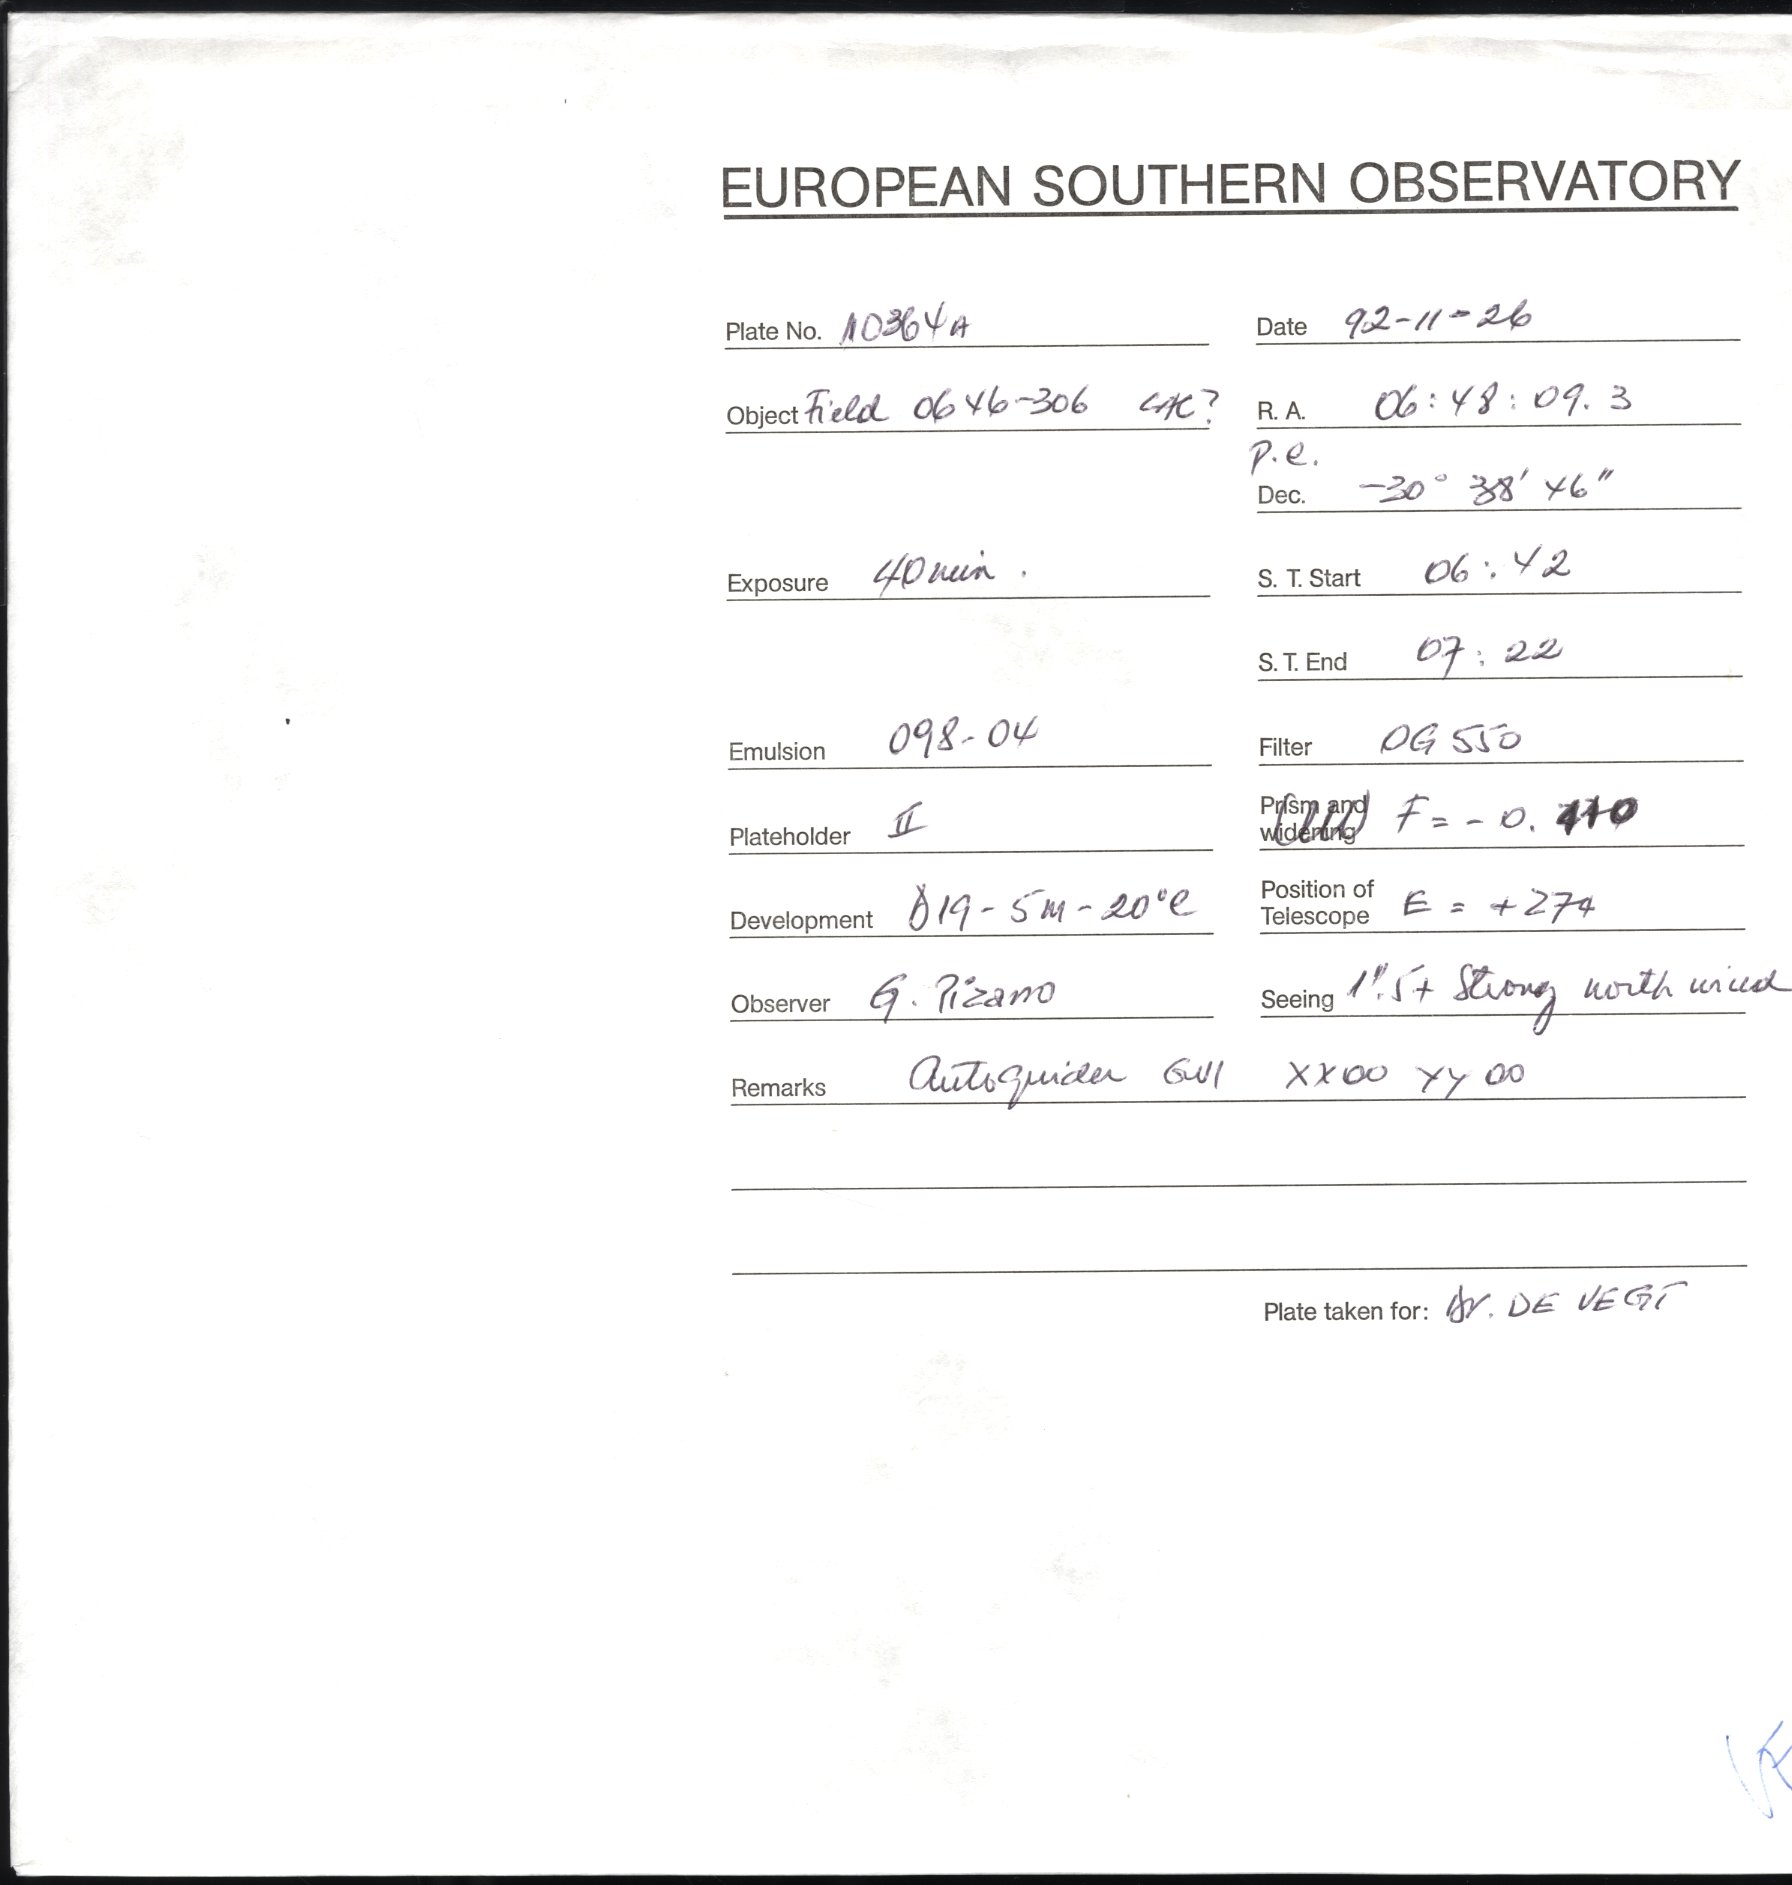 EUROPEAN SOUTHERN OBSERVATORY
Plate No. 10364A Date 92-11-26
Object Field 0646-306 R. A. 06:48:09.3
p.e.
Dec. -30° 38' 46"
Exposure 40 min. S. T. Start 06:42
S. T. End 07:22
Emulsion 098-04 Filter OG 550
Plateholder II Prism and widening F = -0.110
Development D19-5m-20°C Position of Telescope E = +274
Observer G. Pizarro Seeing 1".5+ Strong north wind
Remarks Autoguider XX00 YY00
Plate taken for: Dr. DE VEGT